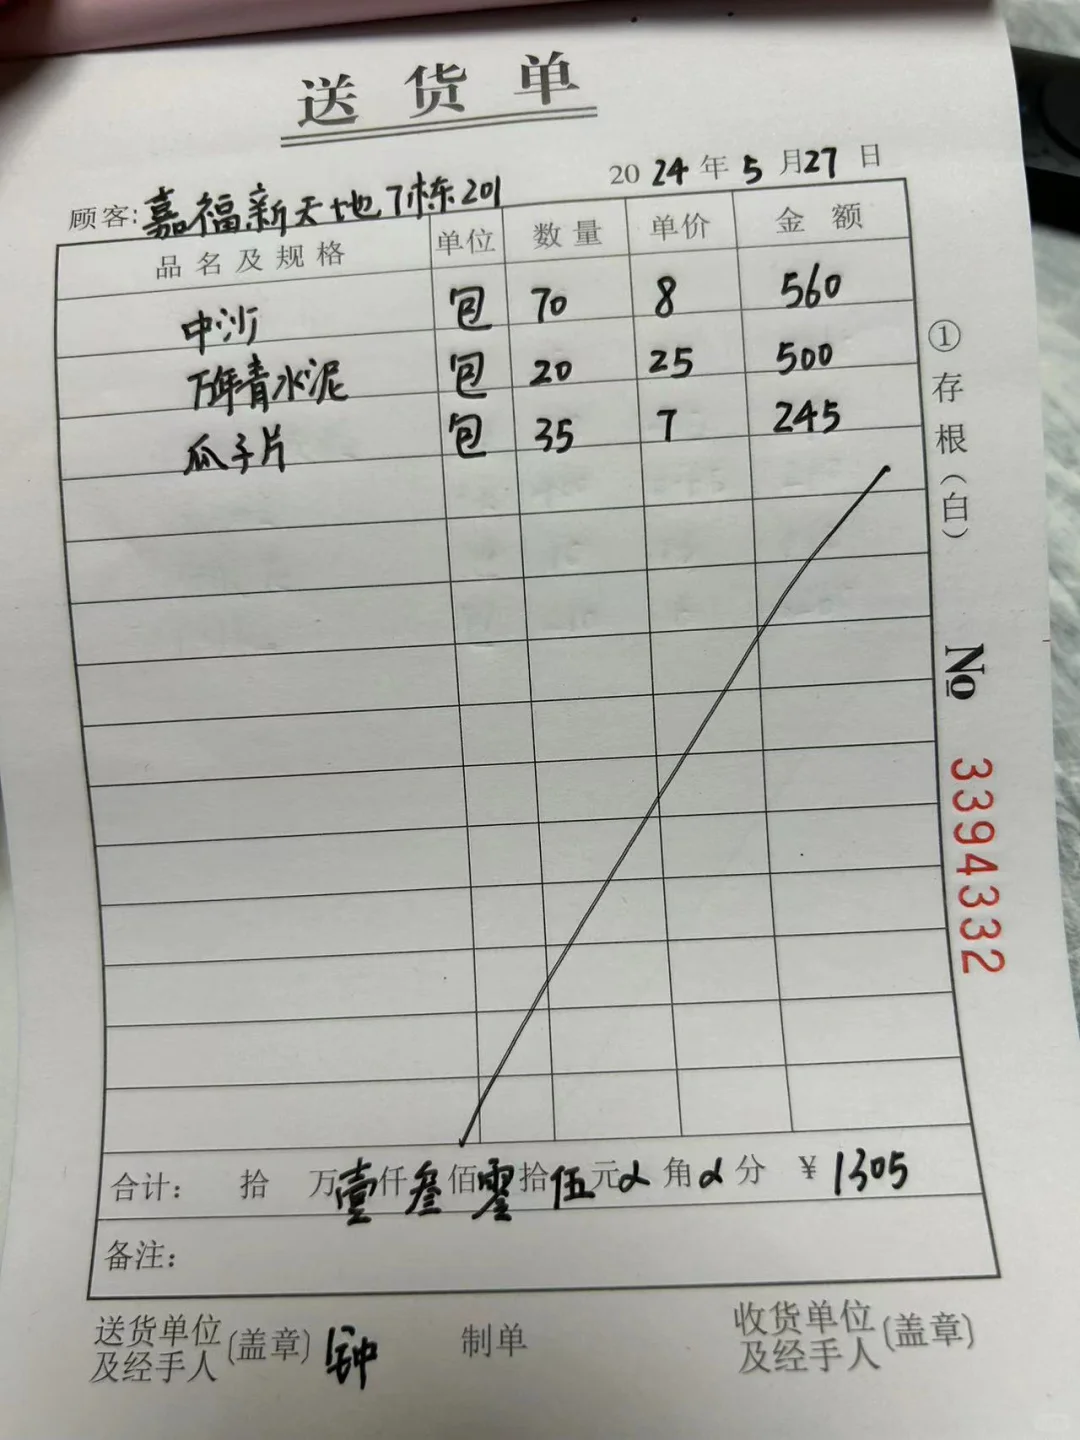 送货单
2024年5月27日
顾客:嘉福新天地7栋201
品名及规格 单位 数量 单价 金额
中沙 包 70 8 560
万年青水泥 包 20 25 500
瓜子片 包 35 7 245
合计: 拾 万壹仟叁佰零拾伍元 角 分 ¥1305
备注:
送货单位
及经手人(盖章) 钟
制单
收货单位
及经手人(盖章)
①存根(白)
No 3394332